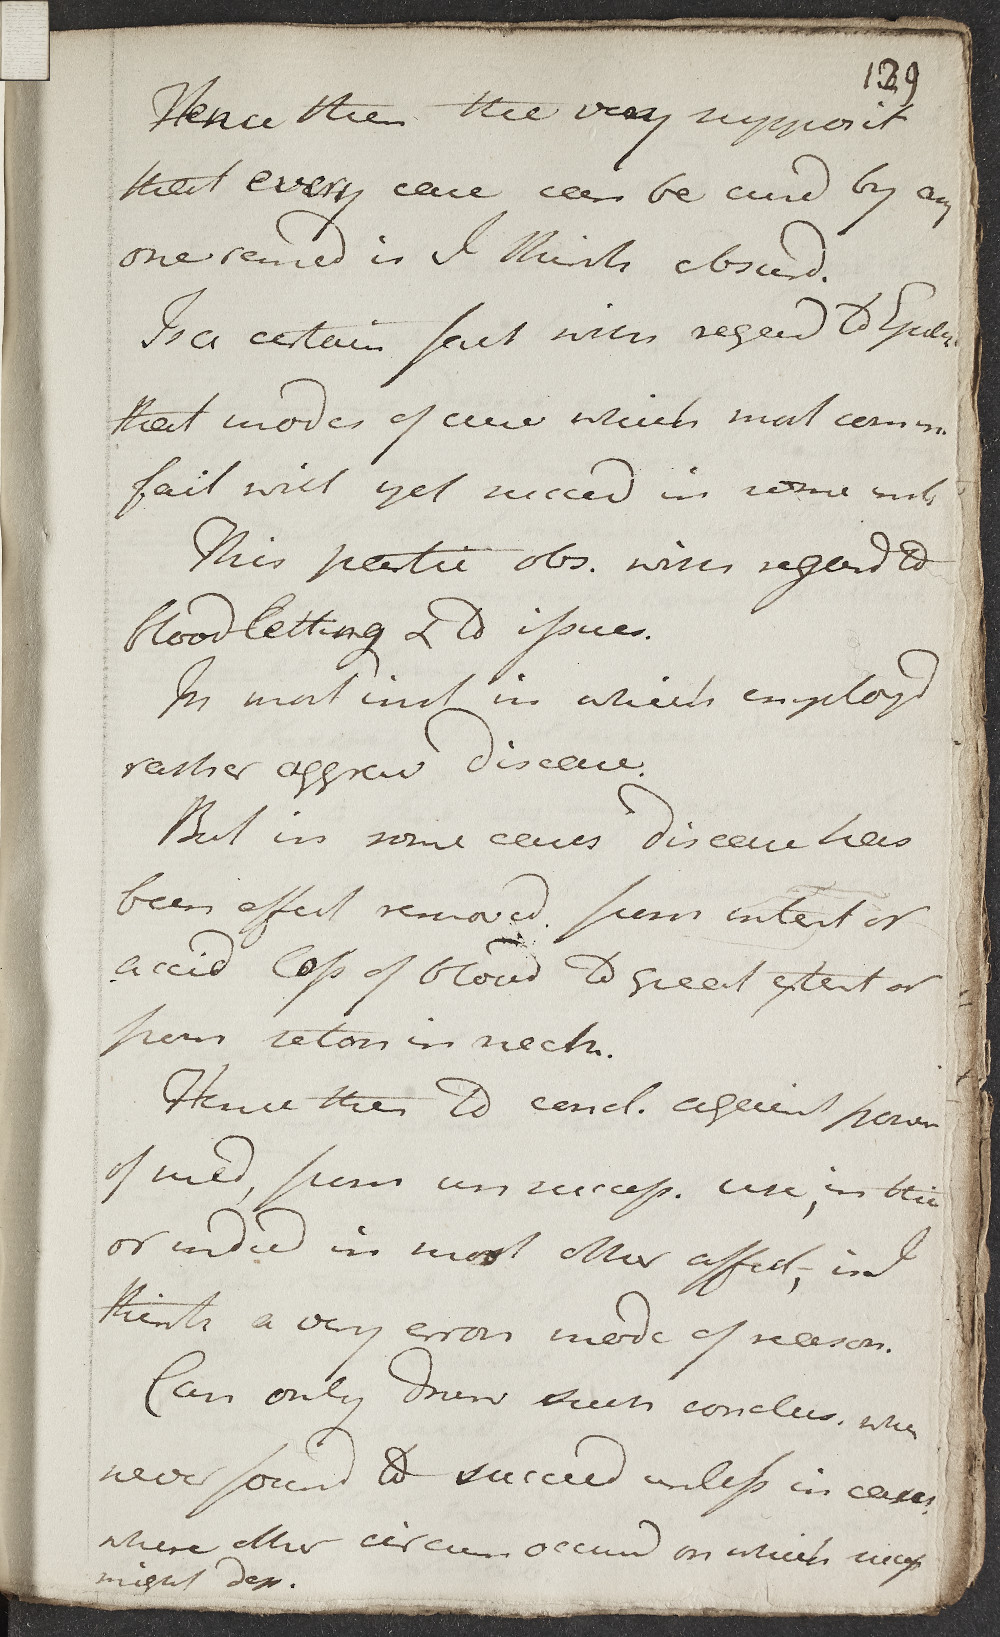 129
Hence then the very supposit
that every case can be cured by any
one remed is I think absurd.
Is a certain fact with regard to Epilep
that modes of cure which most comm
fail will yet succeed in some inst
This partic obs. with regard to
bloodletting & to issues.
In most inst in which employd
rather aggrav disease.
But in some cases disease has
been effect removed. from intent or
accid loss of blood to great extent or
from seton in neck.
Hence then to concl. against power
of med, from unsuccess. use, in this
or indeed in most other affect, is I
think a very erron mode of reason.
Can only draw such conclus. when
never found to succeed unless in cases
where other circum occurred on which success
might dep.